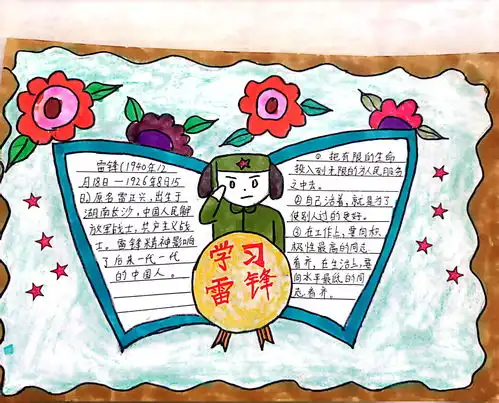 雷锋(1940年12
月18日—1926年8月15
日)原名雷正兴,出生于
湖南长沙,中国人民解
放军战士,共产主义战
士。雷锋精神影响
了后来一代一代
的中国人。
① 把有限的生命
投入到无限的为人民服务
之中去。
②自己活着,就是为了
使别人过的更好。
③在工作上,要向积
极性最高的同志
看齐,在生活上,要
向水平最低的同
志看齐。
学习
雷锋